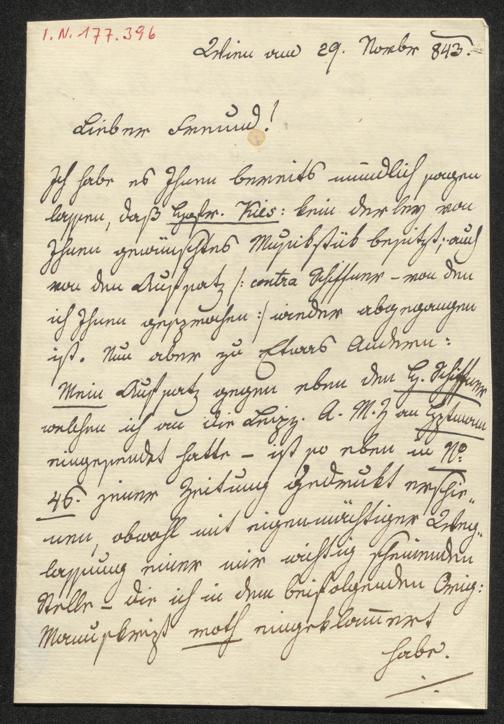 I.N. 177.396
Wien am 29. Novbr 843.
Lieber Freund!
Ich habe es Ihnen bereits mündlich sagen
lassen, daß Hofr. Kies: kein der ley von
Ihnen gewünschtes Musikstük besitzt; auch
von den Aufsatz /: contra Schiffner – von den
ich Ihnen gesprochen :/ wieder abgegangen
ist. Nun aber zu Etwas Andern:
Mein Aufsatz gegen eben den H. Schiffner
welchen ich an die Leipz. A. M. Z an
eingesendet hatte – ist so eben in No
46. jener Zeitung gedrukt erschie-
nen, obwohl mit eigenmächtiger Weg-
lassung einer mir wichtig scheinenden
Stelle – die ich in dem beifolgenden Orig:
Manuskript roth eingeklam̄ert
habe.